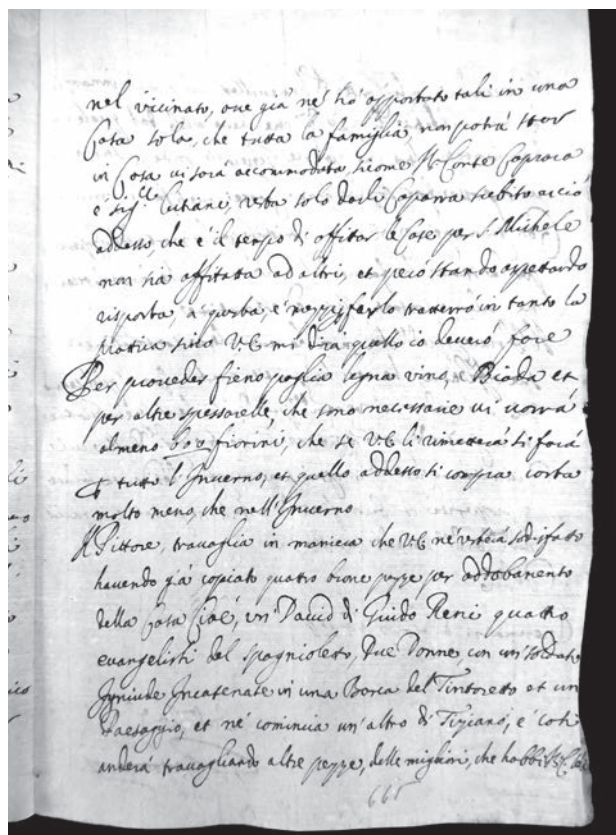 nel vicinato, oue già né hò apportato tali in una
Casa sola, che tutta la famiglia, non potrà star
in Casa ui sarà accommodata, sicome Il Conte Caprara
e Sig.r Cutiani, resta solo darli Caparra subito acciò
addesso, che è il tempo di affitar le Case per S. Michele
non sia affittata ad altri, et perciò stando aspettando
risposta, à questa, é
 lo tratterrò in tanto la
prattica sino V.E. mi dirà quello io deuerò fare
Per proueder fieno paglia legna uino, Biada et
per altre spessarelle, che sono necessarie ui uorrà
almeno 300 fiorini, che se V.E. li rimetterà si farà
p tutto l'Inuerno, et quello addesso si compra costa
molto meno, che nell'Inuerno
Il Pittore, trauaglia in maniera che V.E. né resterà sodisfatto
hauendo già copiato quatro buone pezze per addobamento
della Casa cioè, un David di Guido Reni quattro
euangelisti del spagnioletto, due Donne, con un soldato
Ignude Incatenate in una Barca del Tintoretto et un
Paesaggio, et né comincia un'altro di Tiziano, é così
anderà trauagliando altre pezze, delle migliori, che habbi
665